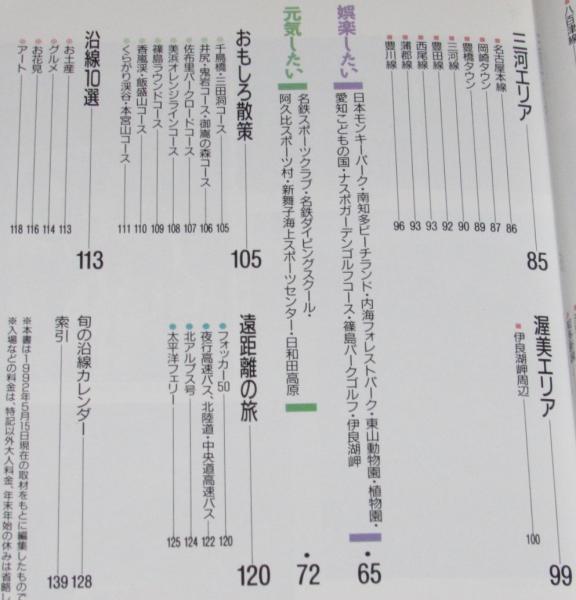 八百津線
三河エリア 85
名古屋本線 86
岡崎タウン 87
豊橋タウン 89
三河線 90
豊田線 92
西尾線 93
蒲郡線 93
豊川線 96
渥美エリア 99
伊良湖岬周辺 100
娯楽したい
日本モンキーパーク・南知多ビーチランド・内海フォレストパーク・東山動物園・植物園・
愛知こどもの国・ナスポガーデンゴルフコース・篠島パークゴルフ・伊良湖岬
・65
元気したい
名鉄スポーツクラブ・名鉄ダイビングスクール・
阿久比スポーツ村・新舞子海上スポーツセンター・日和田高原
・72
おもしろ散策 105
千鳥橋・三田洞コース 105
井尻・鬼岩コース・御嵩の森コース 106
佐布里パークロードコース 107
美浜オレンジラインコース 108
篠島ラウンドコース 109
香嵐渓・飯盛山コース 110
くらがり渓谷・本宮山コース 111
遠距離の旅 120
フォッカー50 120
夜行高速バス、北陸道・中央道高速バス 122
北アルプス号 124
太平洋フェリー 125
沿線10選 113
お土産 113
グルメ 114
お花見 116
アート 118
旬の沿線カレンダー 128
索引 139
※本書は1992年5月15日現在の取材をもとに編集したもので
※入場などの料金は、特記以外大人料金、年末年始の休みは省略し